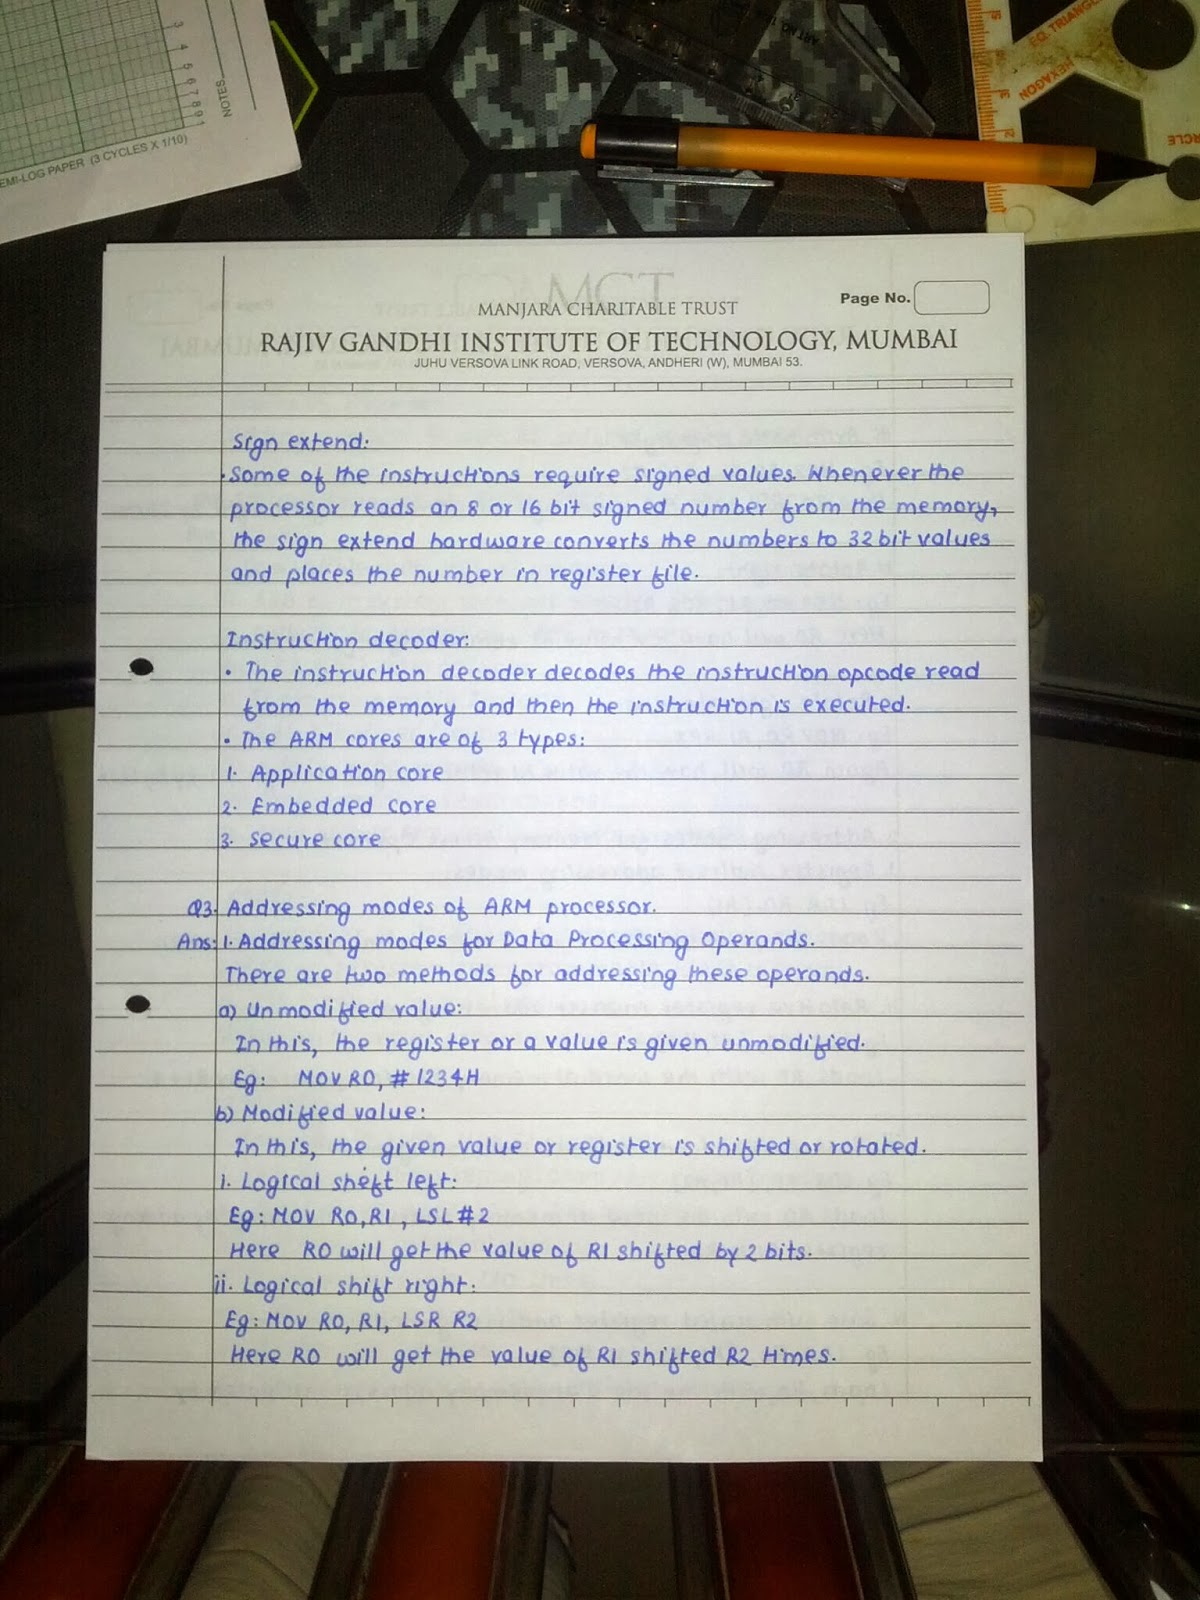 3
4
5
6
7
8
9
1
NOTES
EMI-LOG PAPER (3 CYCLES X 1/10)
ART NO.
EQ TRIANGL
HEXAGON
RCLE
MCT
MANJARA CHARITABLE TRUST
Page No.
RAJIV GANDHI INSTITUTE OF TECHNOLOGY, MUMBAI
JUHU VERSOVA LINK ROAD, VERSOVA, ANDHERI (W), MUMBAI 53.
Sign extend:
• Some of the instructions require signed values. Whenever the
processor reads an 8 or 16 bit signed number from the memory,
the sign extend hardware converts the numbers to 32 bit values
and places the number in register file.
Instruction decoder:
• The instruction decoder decodes the instruction opcode read
from the memory and then the instruction is executed.
• The ARM cores are of 3 types:
1. Application core
2. Embedded core
3. Secure core
Q3. Addressing modes of ARM processor.
Ans: 1. Addressing modes for Data Processing Operands.
There are two methods for addressing these operands.
a) Unmodified value:
In this, the register or a value is given unmodified.
Eg: MOV R0, #1234H
b) Modified value:
In this, the given value or register is shifted or rotated.
i. Logical sheft left:
Eg: MOV R0, R1, LSL #2
Here R0 will get the value of R1 shifted by 2 bits.
ii. Logical shift right:
Eg: MOV R0, R1, LSR R2
Here R0 will get the value of R1 shifted R2 times.